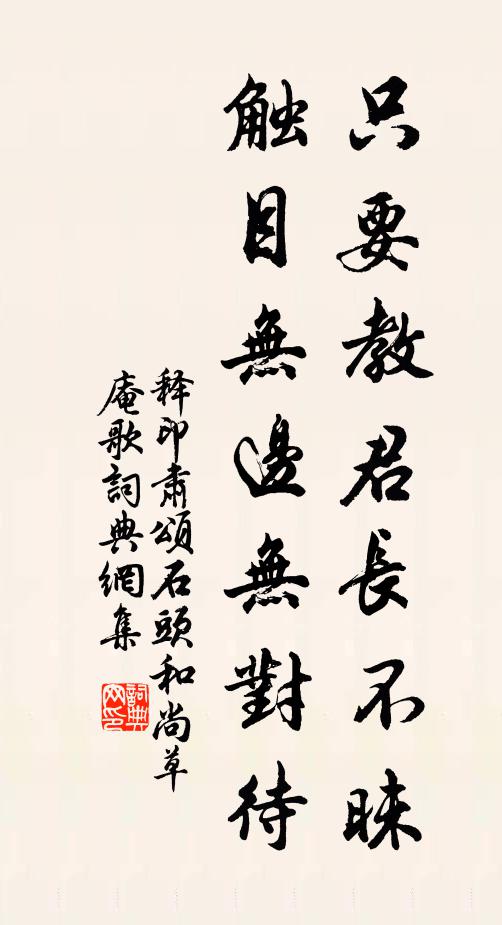 只要教君長不昧
触目無邊無對待
释印肃頌石頭和尚草
庵歌詞典網集
詞典网印